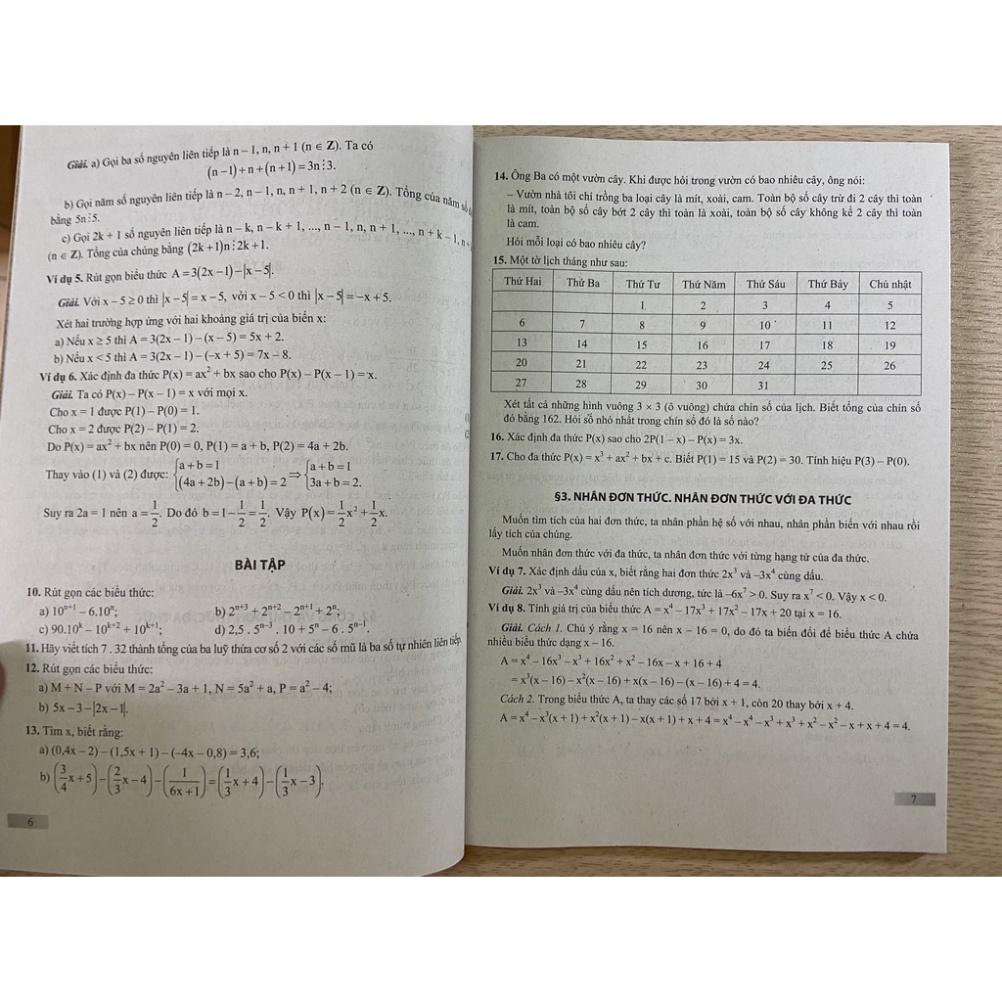 Giải. a) Gọi ba số nguyên liên tiếp là n – 1, n, n + 1 (n ∈ Z). Ta có
(n – 1) + n + (n + 1) = 3n ⋮ 3.
b) Gọi năm số nguyên liên tiếp là n – 2, n – 1, n, n + 1, n + 2 (n ∈ Z). Tổng của năm số
bằng 5n ⋮ 5.
c) Gọi 2k + 1 số nguyên liên tiếp là n – k, n – k + 1, ..., n – 1, n, n + 1, ..., n + k – 1,
(n ∈ Z). Tổng của chúng bằng (2k + 1)n ⋮ 2k + 1.
Ví dụ 5. Rút gọn biểu thức A = 3(2x – 1) – |x – 5|.
Giải. Với x – 5 ≥ 0 thì |x – 5| = x – 5, với x – 5 < 0 thì |x – 5| = –x + 5.
Xét hai trường hợp ứng với hai khoảng giá trị của biến x:
a) Nếu x ≥ 5 thì A = 3(2x – 1) – (x – 5) = 5x + 2.
b) Nếu x < 5 thì A = 3(2x – 1) – (–x + 5) = 7x – 8.
Ví dụ 6. Xác định đa thức P(x) = ax² + bx sao cho P(x) – P(x – 1) = x.
Giải. Ta có P(x) – P(x – 1) = x với mọi x.
Cho x = 1 được P(1) – P(0) = 1.
Cho x = 2 được P(2) – P(1) = 2.
Do P(x) = ax² + bx nên P(0) = 0, P(1) = a + b, P(2) = 4a + 2b.
Thay vào (1) và (2) được: {a + b = 1; (4a + 2b) – (a + b) = 2 ⇒ {a + b = 1; 3a + b = 2.
Suy ra 2a = 1 nên a = 1/2. Do đó b = 1 – 1/2 = 1/2. Vậy P(x) = 1/2 x² + 1/2 x.
BÀI TẬP
10. Rút gọn các biểu thức:
a) 10ⁿ⁺¹ – 6.10ⁿ; b) 2ⁿ⁺³ + 2ⁿ⁺² – 2ⁿ⁺¹ + 2ⁿ;
c) 90.10ᵏ – 10ᵏ⁺² + 10ᵏ⁺¹; d) 2,5 . 5ⁿ⁻³ . 10 + 5ⁿ – 6 . 5ⁿ⁻¹.
11. Hãy viết tích 7 . 32 thành tổng của ba luỹ thừa cơ số 2 với các số mũ là ba số tự nhiên liên tiếp.
12. Rút gọn các biểu thức:
a) M + N – P với M = 2a² – 3a + 1, N = 5a² + a, P = a² – 4;
b) 5x – 3 – |2x – 1|.
13. Tìm x, biết rằng:
a) (0,4x – 2) – (1,5x + 1) – (–4x – 0,8) = 3,6;
b) (3/4 x + 5) – (2/3 x – 4) – (1/(6x + 1)) = (1/3 x + 4) – (1/3 x – 3).
6
14. Ông Ba có một vườn cây. Khi được hỏi trong vườn có bao nhiêu cây, ông nói:
– Vườn nhà tôi chỉ trồng ba loại cây là mít, xoài, cam. Toàn bộ số cây trừ đi 2 cây thì toàn
là mít, toàn bộ số cây bớt 2 cây thì toàn là xoài, toàn bộ số cây không kể 2 cây thì toàn
là cam.
Hỏi mỗi loại có bao nhiêu cây?
15. Một tờ lịch tháng như sau:
Thứ Hai Thứ Ba Thứ Tư Thứ Năm Thứ Sáu Thứ Bảy Chủ nhật
1 2 3 4 5
6 7 8 9 10 11 12
13 14 15 16 17 18 19
20 21 22 23 24 25 26
27 28 29 30 31
Xét tất cả những hình vuông 3 × 3 (ô vuông) chứa chín số của lịch. Biết tổng của chín số
đó bằng 162. Hỏi số nhỏ nhất trong chín số đó là số nào?
16. Xác định đa thức P(x) sao cho 2P(1 – x) – P(x) = 3x.
17. Cho đa thức P(x) = x³ + ax² + bx + c. Biết P(1) = 15 và P(2) = 30. Tính hiệu P(3) – P(0).
§3. NHÂN ĐƠN THỨC. NHÂN ĐƠN THỨC VỚI ĐA THỨC
Muốn tìm tích của hai đơn thức, ta nhân phần hệ số với nhau, nhân phần biến với nhau rồi
lấy tích của chúng.
Muốn nhân đơn thức với đa thức, ta nhân đơn thức với từng hạng tử của đa thức.
Ví dụ 7. Xác định dấu của x, biết rằng hai đơn thức 2x³ và –3x⁴ cùng dấu.
Giải. 2x³ và –3x⁴ cùng dấu nên tích dương, tức là –6x⁷ > 0. Suy ra x⁷ < 0. Vậy x < 0.
Ví dụ 8. Tính giá trị của biểu thức A = x⁴ – 17x³ + 17x² – 17x + 20 tại x = 16.
Giải. Cách 1. Chú ý rằng x = 16 nên x – 16 = 0, do đó ta biến đổi để biểu thức A chứa
nhiều biểu thức dạng x – 16.
A = x⁴ – 16x³ – x³ + 16x² + x² – 16x – x + 16 + 4
= x³(x – 16) – x²(x – 16) + x(x – 16) – (x – 16) + 4 = 4.
Cách 2. Trong biểu thức A, ta thay các số 17 bởi x + 1, còn 20 thay bởi x + 4.
A = x⁴ – x³(x + 1) + x²(x + 1) – x(x + 1) + x + 4 = x⁴ – x⁴ – x³ + x³ + x² – x² – x + x + 4 = 4.
7